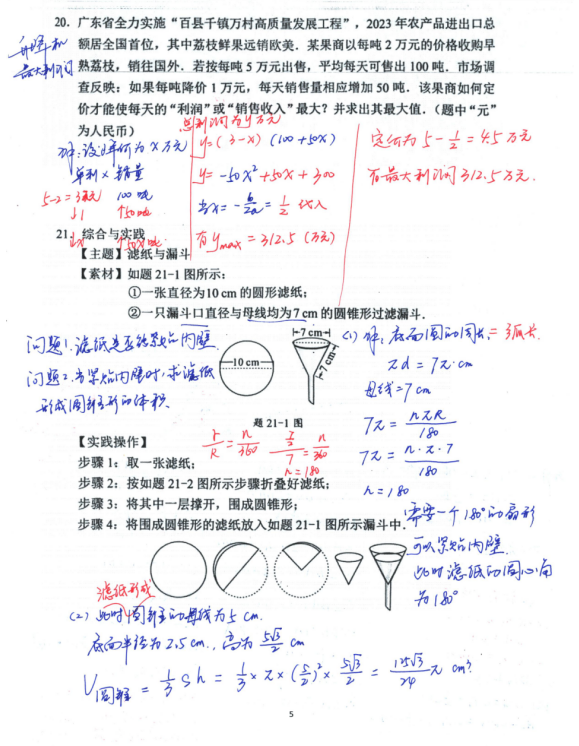 20. 广东省全力实施“百县千镇万村高质量发展工程”，2023 年农产品进出口总
额居全国首位，其中荔枝鲜果远销欧美．某果商以每吨 2 万元的价格收购早
熟荔枝，销往国外．若按每吨 5 万元出售，平均每天可售出 100 吨．市场调
查反映：如果每吨降价 1 万元，每天销售量相应增加 50 吨．该果商如何定
价才能使每天的“利润”或“销售收入”最大？并求出其最大值．（题中“元”
为人民币）
最大利润
总利润为y万元
解：设降价为x万元
y=(3-x)(100+50x)
定价为5-1/2=4.5万元
单利×销量
y=-50x²+50x+300
有最大利润312.5万元.
5-2=3万元 100吨
当x=-b/2a=1/2 代入
↓1 ↑50吨
有y max=312.5(万元)
↓x ↑50x吨
21. 综合与实践
【主题】滤纸与漏斗
【素材】如题 21-1 图所示：
①一张直径为 10 cm 的圆形滤纸；
②一只漏斗口直径与母线均为 7 cm 的圆锥形过滤漏斗．
问题1.滤纸是否能紧贴内壁
问题2.当紧贴内壁时,求滤纸
形成圆锥形的体积.
10 cm
7 cm
7 cm
题 21-1 图
(1)解:底面圆的周长=弧长.
πd=7π·cm
母线=7cm
7π=nπR/180
7π=n·π·7/180
n=180
需要一个180°的扇形
可以紧贴内壁.
此时滤纸的圆心角
为180°
【实践操作】
r/R=n/360
7/2/7=n/360
n=180
步骤 1：取一张滤纸；
步骤 2：按如题 21-2 图所示步骤折叠好滤纸；
步骤 3：将其中一层撑开，围成圆锥形；
步骤 4：将围成圆锥形的滤纸放入如题 21-1 图所示漏斗中．
滤纸形成
(2)此时圆锥的母线为5cm.
底面半径为2.5cm.,高为5√3/2 cm
V圆锥=1/3Sh=1/3×π×(5/2)²×5√3/2=125√3/24π cm³
5